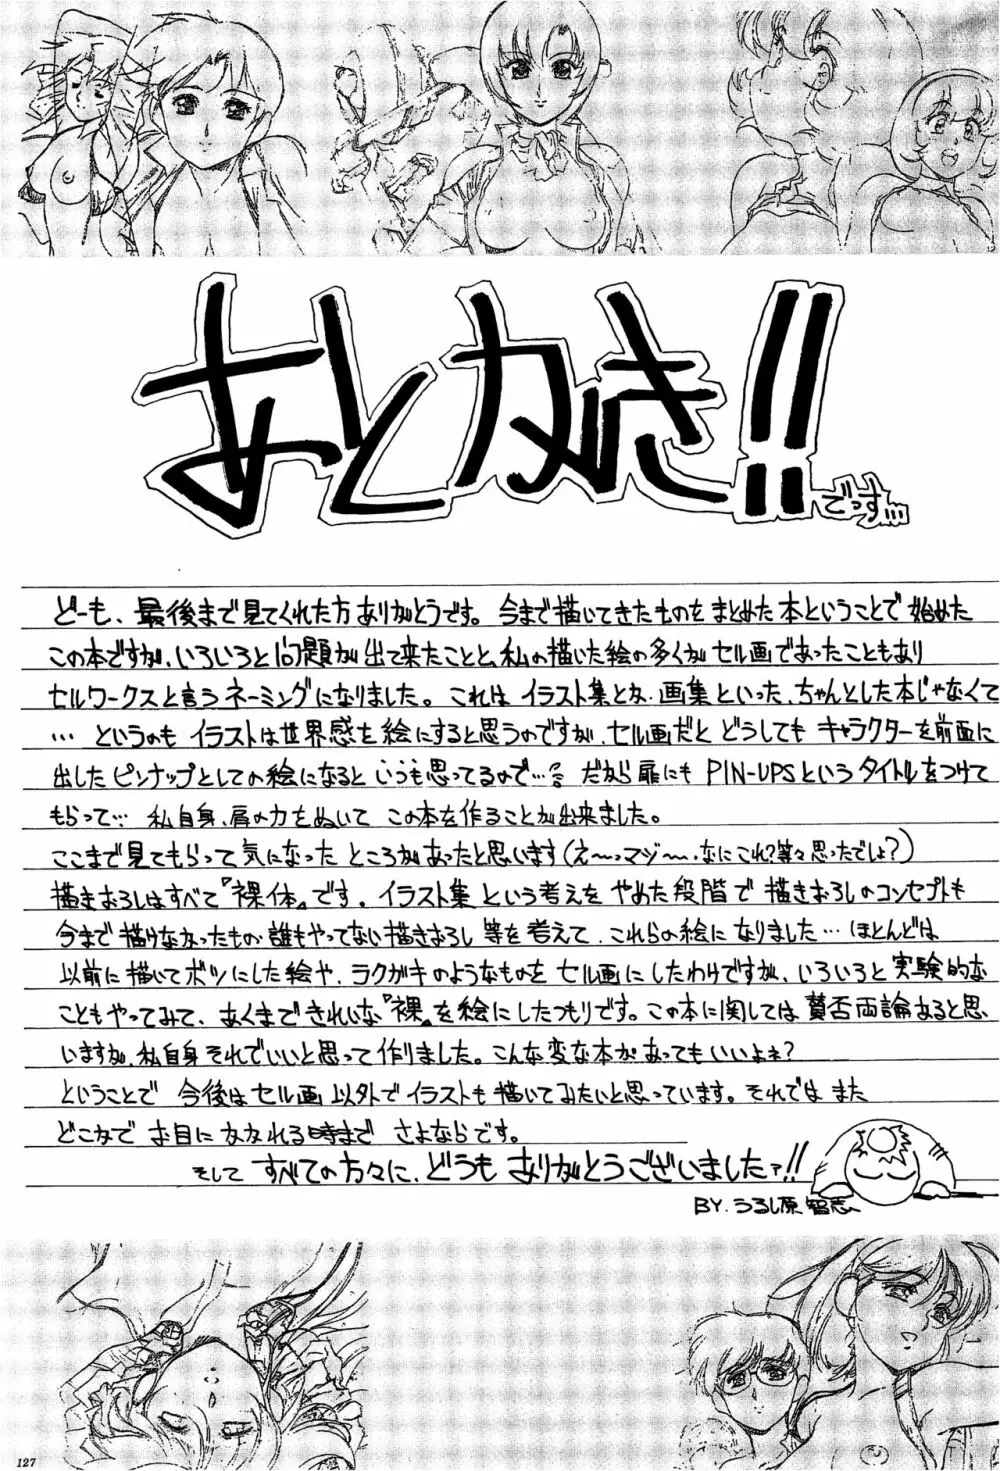 あとがき!!
でっす…
どーも、最後まで見てくれた方ありがとうです。今まで描いてきたものをまとめた本ということで始めた
この本ですが、いろいろと問題が出て来たことと、私の描いた絵の多くがセル画であったこともあり
セルワークスと言うネーミングになりました。これはイラスト集とか、画集といった、ちゃんとした本じゃなくて
…というのもイラストは世界感を絵にすると思うのですが、セル画だとどうしてもキャラクターを前面に
出したピンナップとしての絵になるといつも思ってるので…。だから扉にもPIN-UPSというタイトルをつけて
もらって…私自身、肩の力をぬいてこの本を作ることが出来ました。
ここまで見てもらって気になったところがあったと思います(え〜っマジ〜、なにこれ?等々思ったでしょ?)
描きおろしはすべて『裸体』です。イラスト集という考えをやめた段階で描きおろしのコンセプトも
今まで描けなかったもの・誰もやってない描きおろし等を考えて、これらの絵になりました…ほとんどは
以前に描いてボツにした絵や、ラクガキのようなものをセル画にしたわけですが、いろいろと実験的な
こともやってみて、あくまできれいな『裸』を絵にしたつもりです。この本に関しては賛否両論あると思
いますが、私自身それでいいと思って作りました。こんな変な本があってもいいよネ?
ということで今後はセル画以外でイラストも描いてみたいと思っています。それではまた
どこかでお目にかかれる時までさよならです。
そしてすべての方々に、どうもありがとうございましたァ!!
BY.うるし原 智志
127